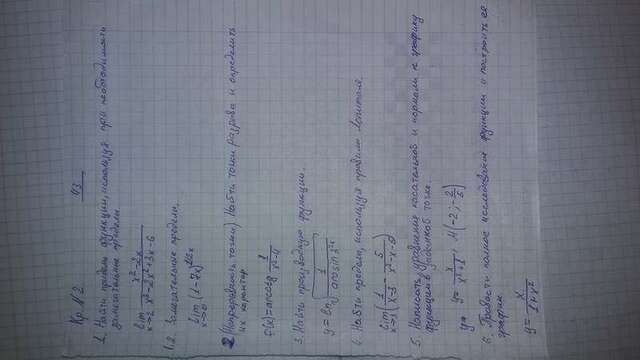 Кр. №2 43
1. Найти пределы функции, используя при необходимости
замечательные пределы.
lim x→2 (x²-2x)/(x³-2x²+3x-6)
1.2. Замечательные пределы.
lim x→0 (1-7x)^(2/x)
2. (Непрерывность точки) Найти точки разрыва и определить
их характер
f(x)=arcctg 1/(x²-4)
3. Найти производную функции.
y=ln√(1/arcsin
4. Найти пределы, используя правило Лопиталя.
lim x→3 (1/(x-3) - 5/(x²-x-6))
5. Написать уравнение касательной и нормали к графику
функции в заданной точке.
y= y= x/(x²+1), M(-2; -2/5)
6. Провести полное исследование функции и построить ее
график.
y= x/(1+x²)